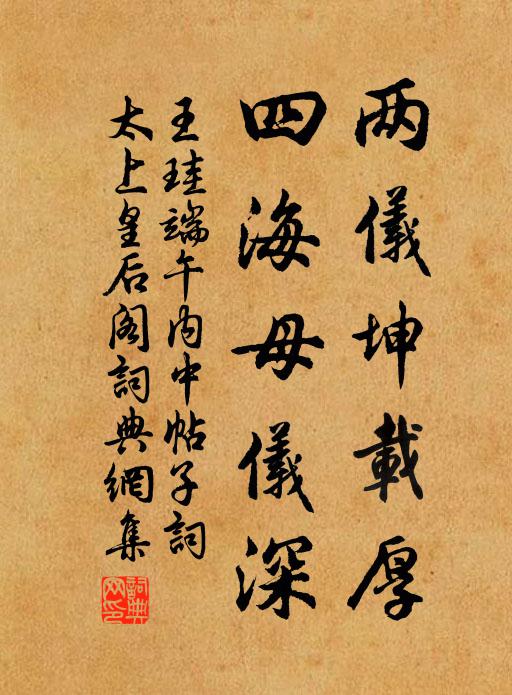 两儀坤載厚
四海母儀深
王珪端午内中帖子詞
太上皇后阁詞典網集
詞典
网印